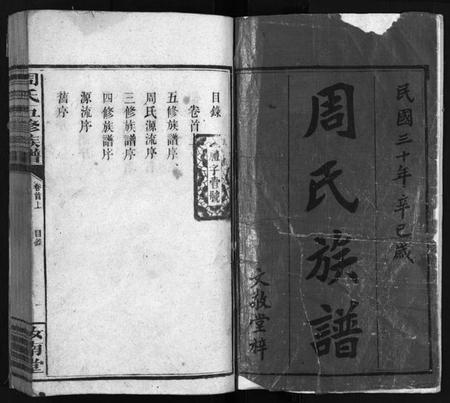 民國三十年辛巳歲
周氏族譜
文敬堂梓
目錄
卷首上
五修族譜序
周氏源流序
三修族譜序
四修族譜序
源流序
舊序
周氏五修族譜
卷首上
目錄
汝南堂